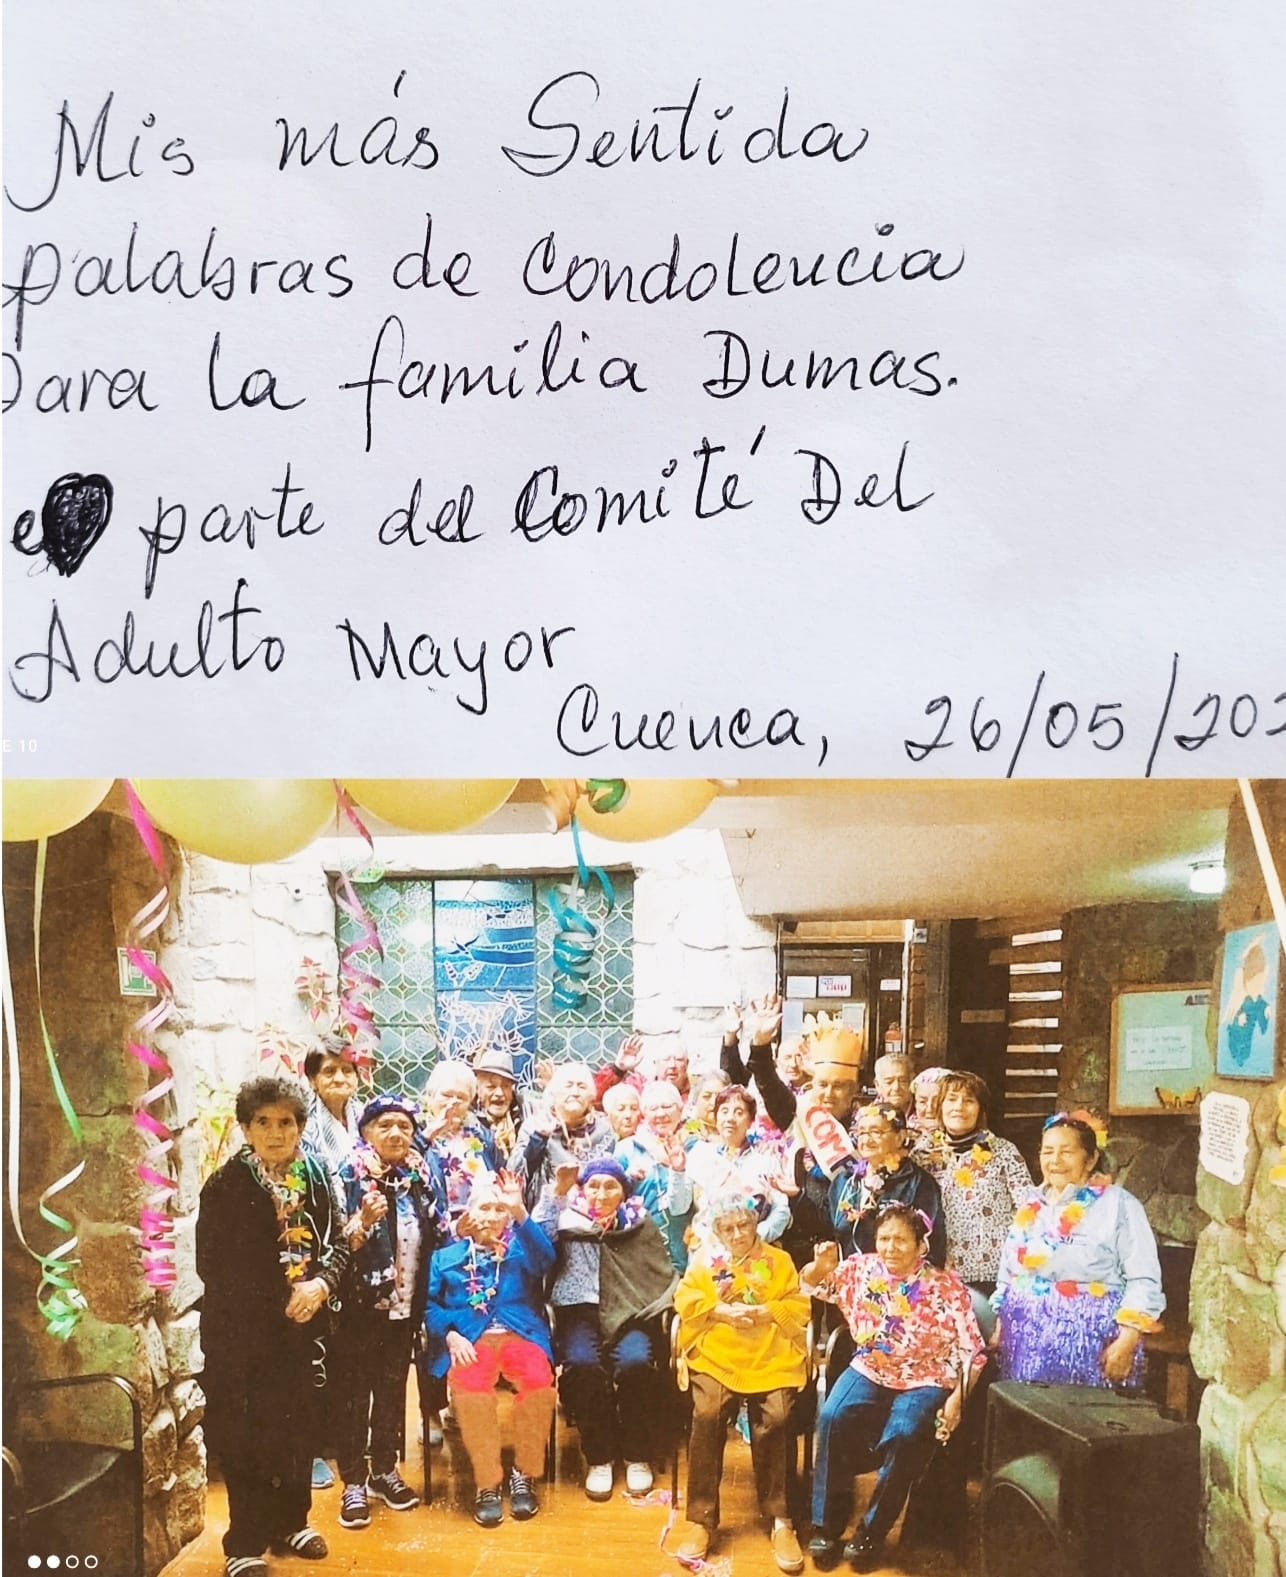 Mis más Sentida
palabras de Condolencia
para la familia Dumas.
parte del Comité Del
Adulto Mayor
Cuenca, 26/05/202
E 10